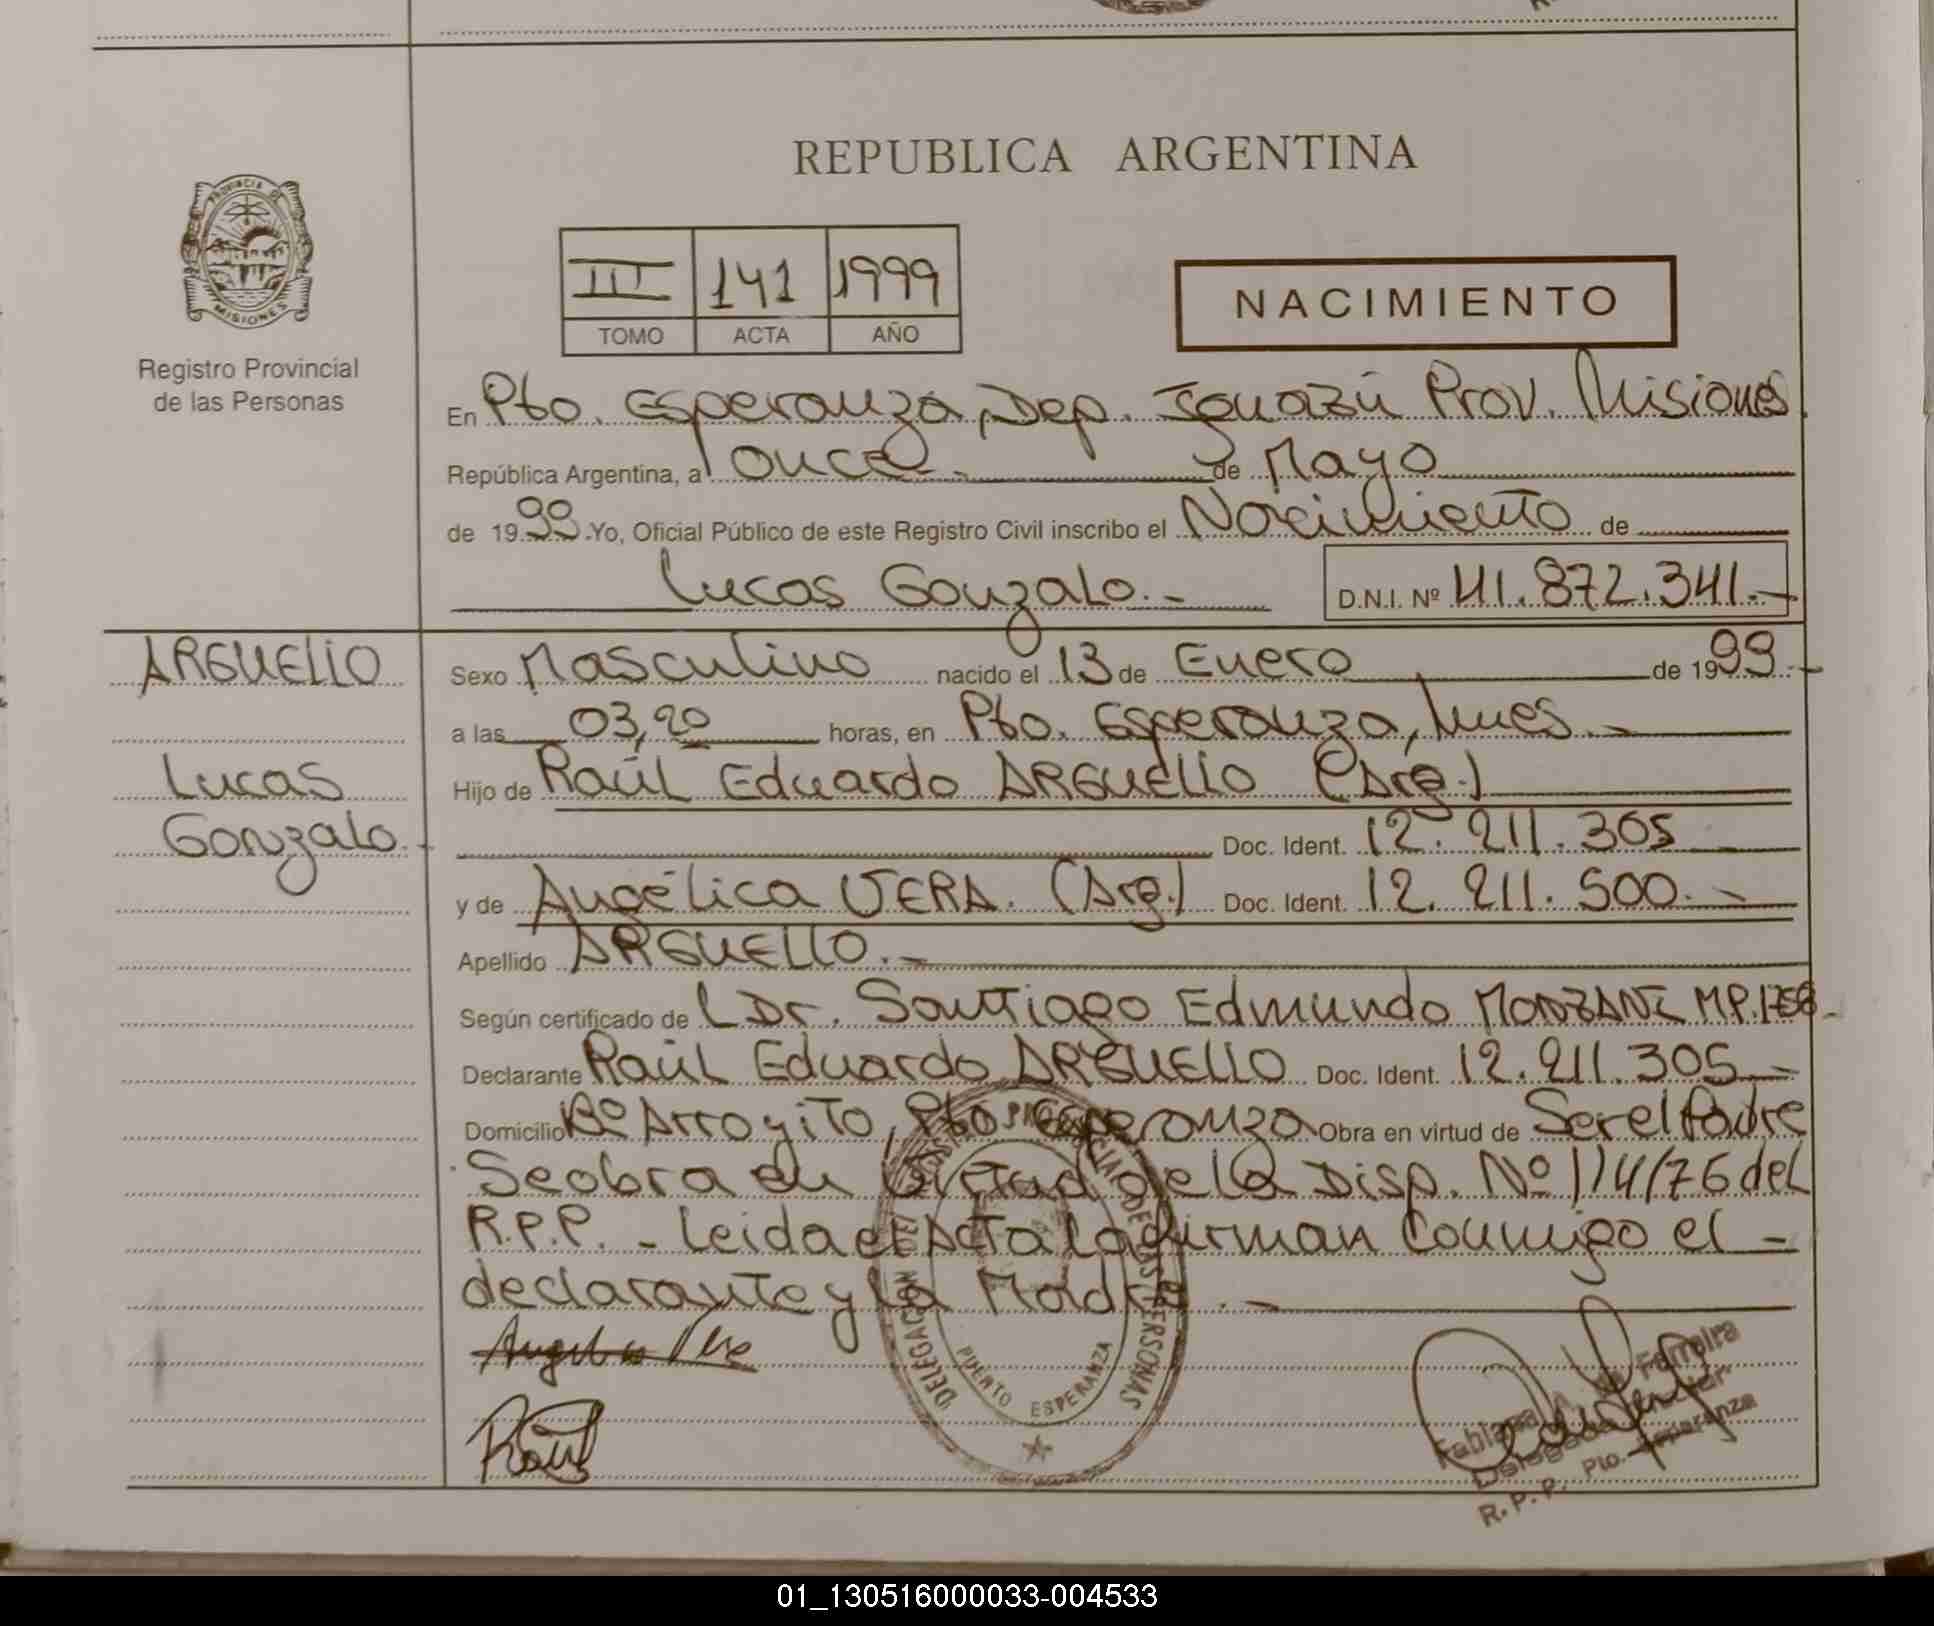 REPUBLICA ARGENTINA
PROVINCIA DE MISIONES
Registro Provincial
de las Personas
III 141 1999
TOMO ACTA AÑO
NACIMIENTO
En Pto. Esperanza, Dep. Iguazú Prov. Misiones
República Argentina, a once.- de Mayo
de 1999 Yo, Oficial Público de este Registro Civil inscribo el Nacimiento de
Lucas Gonzalo.- D.N.I. Nº 41.872.341.-
ARGUELLO
Lucas
Gonzalo.-
Sexo Masculino nacido el 13 de Enero de 1999.-
a las 03,20 horas, en Pto. Esperanza, Mnes.-
Hijo de Raúl Eduardo ARGUELLO (Arg.)
Doc. Ident. 12.211.305
y de Angélica VERA. (Arg.) Doc. Ident. 12.211.500.-
Apellido ARGUELLO.-
Según certificado de L Dr. Santiago Edmundo M.P.
Declarante Raúl Eduardo ARGUELLO Doc. Ident. 12.211.305.-
Domicilio Bº Arroyito, Pto. Esperanza Obra en virtud de Ser el Padre
Se obra en virtud de la Disp. Nº 114/76 del
R.P.P. - Leida el Acta la firman conmigo el -
declarante y la Madre.-
Raúl
DELEGACION DE LAS PERSONAS
PUERTO ESPERANZA
Fabiana Ferreira
Delegada
R.P.P. Pto. Esperanza
01_130516000033-004533